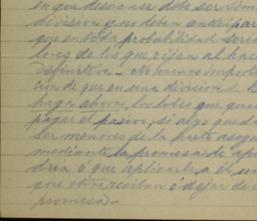 en que descanse debe ser
division y no deben anticipar
que en toda probabilidad sere
de los que rijan al hac
definitiva - No menos import
cion de que en una division de
haga ahora, los lotes que que
pagar el pasivo, si algo queda
ser menores de la parte
mediante la promesa de
dria ó que aplicarle a él un
que otros reciban ó dejar de
promesa